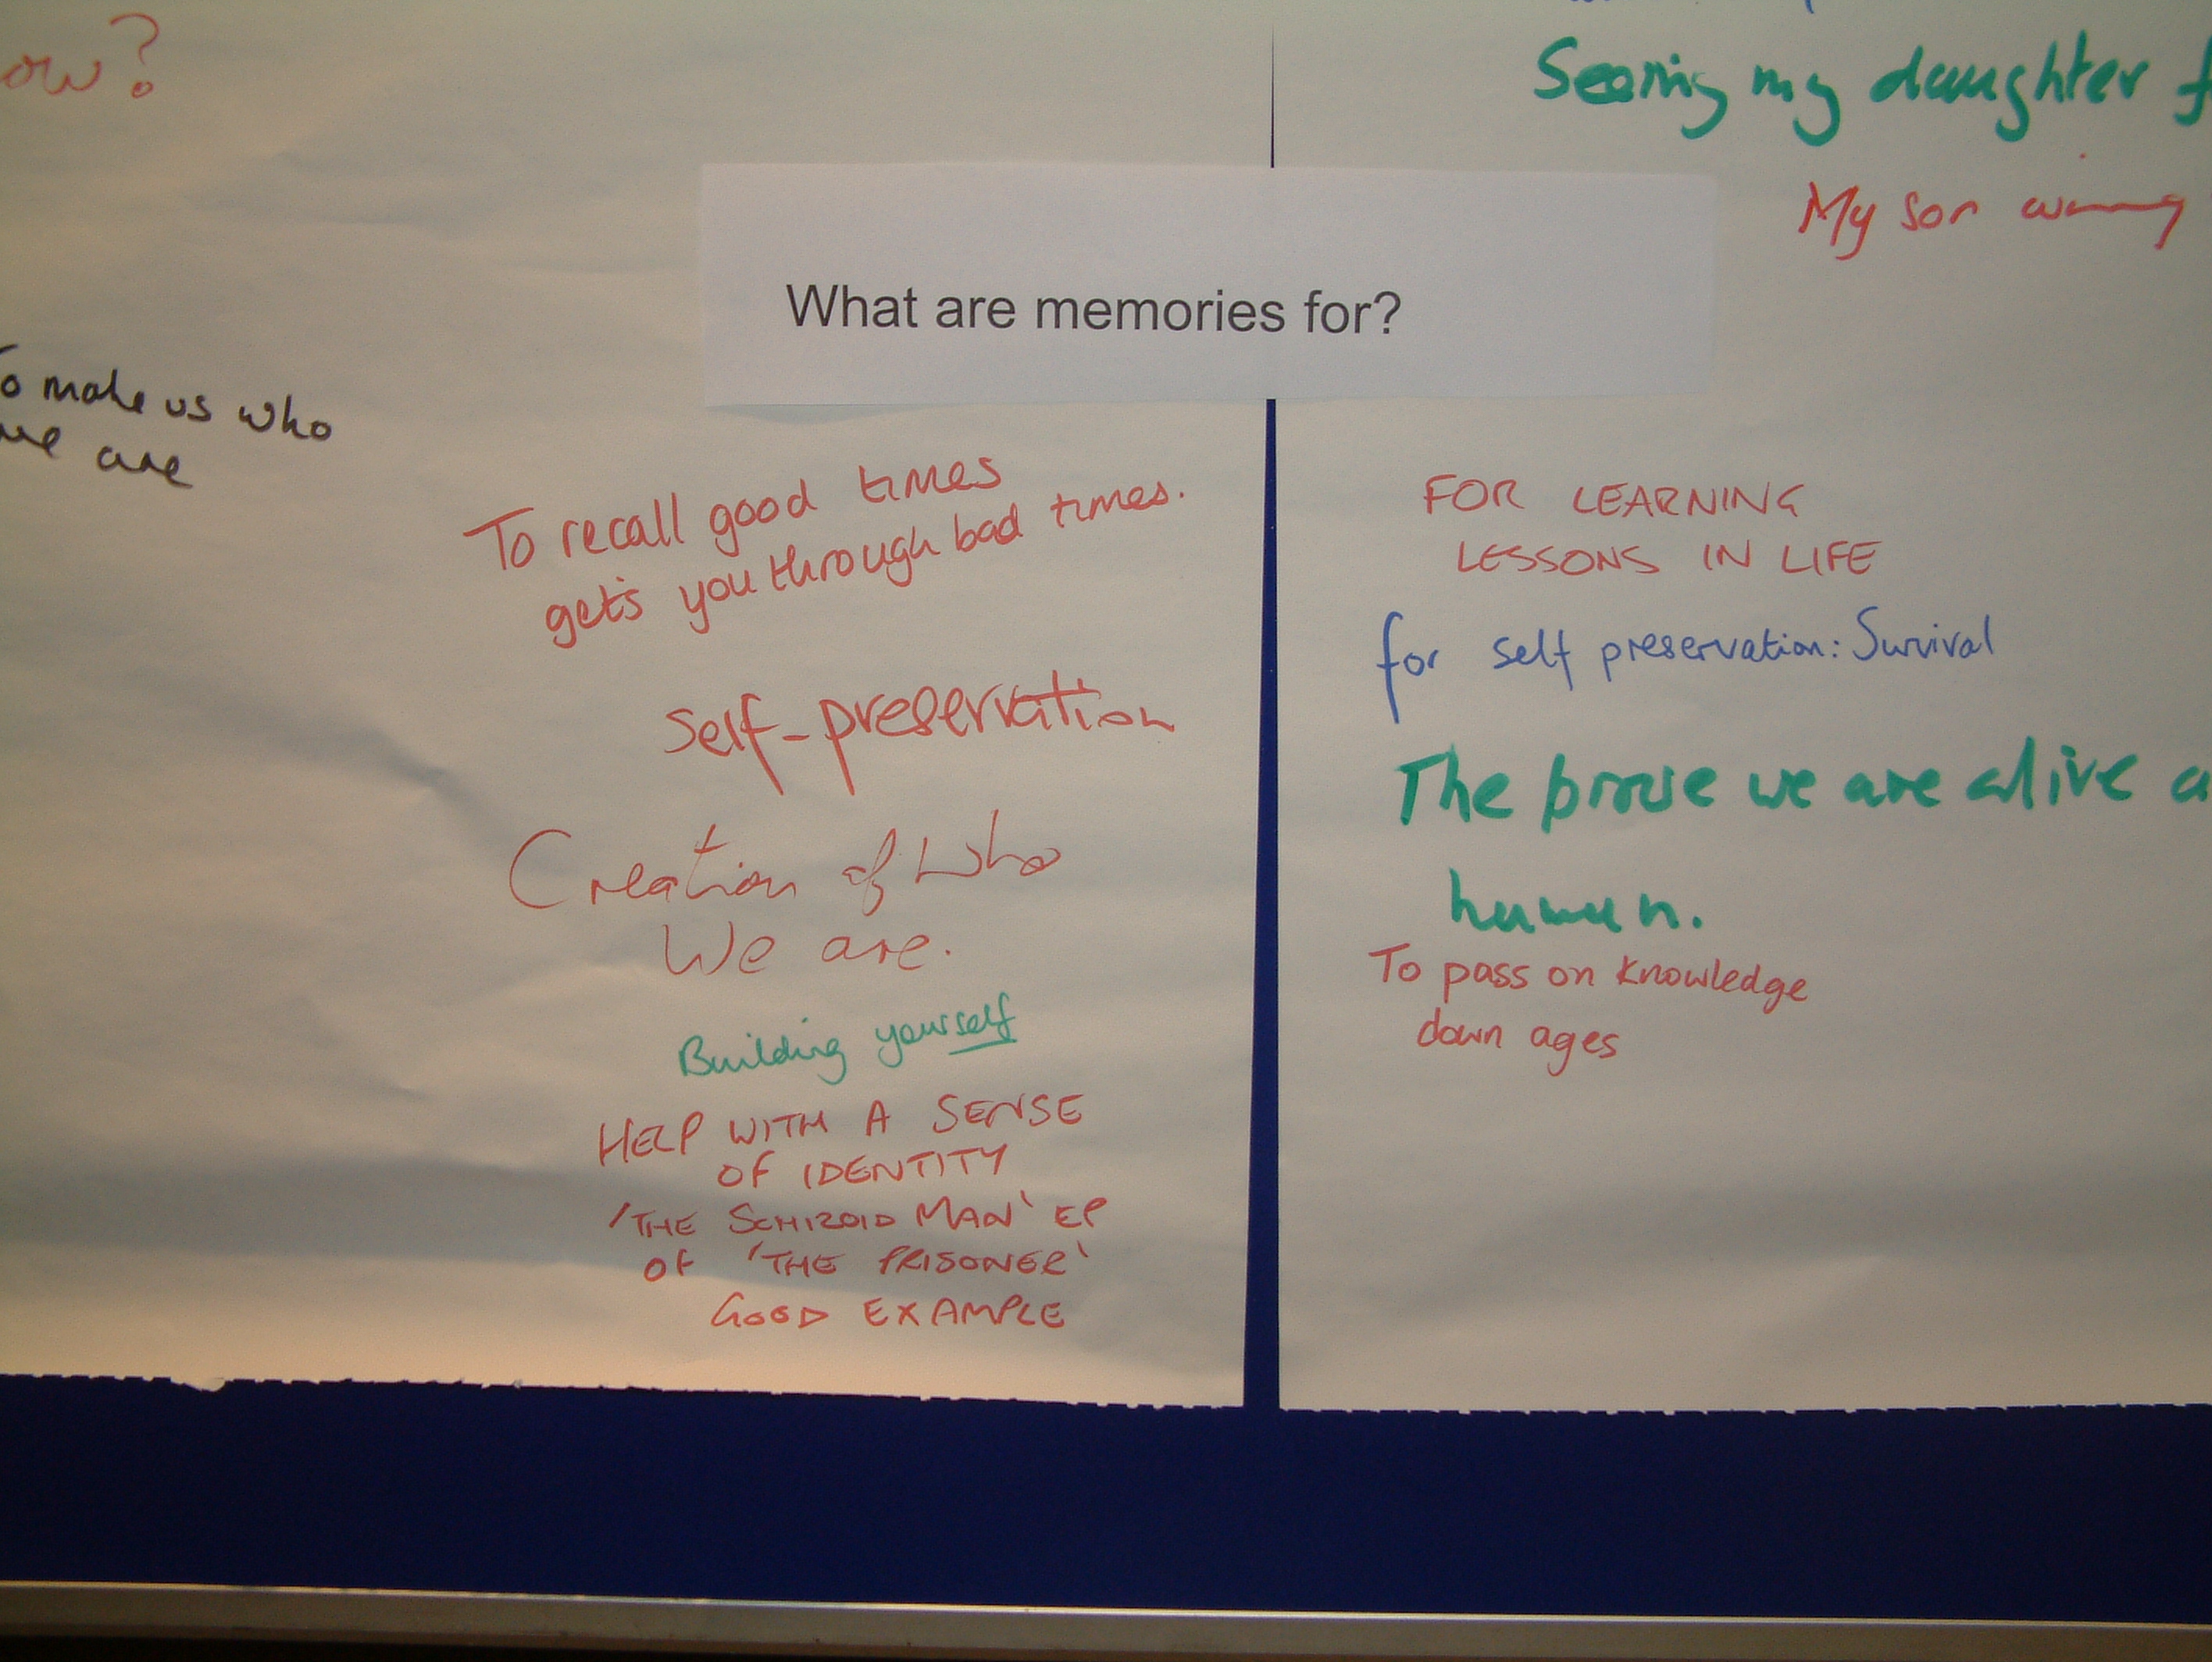 ow?
Seeing my daughter f
My son
What are memories for?
To make us who
we are
To recall good times
gets you through bad times.
Self-preservation
Creation of Who
We are.
Building yourself
HELP WITH A SENSE
OF IDENTITY
'THE SCHIZOID MAN' EP
OF 'THE PRISONER'
GOOD EXAMPLE
FOR LEARNING
LESSONS IN LIFE
for self preservation: Survival
The prove we are alive a
human.
To pass on knowledge
down ages